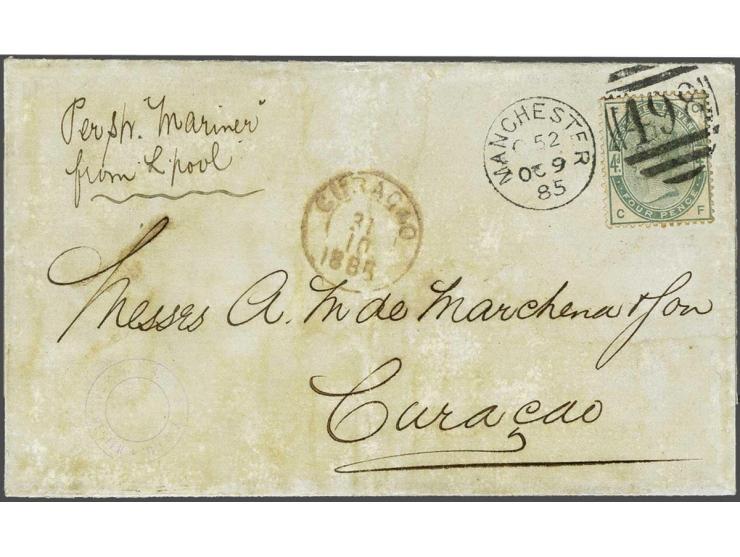 Per str. "Mariner"
from L'pool
MANCHESTER
52
OC 9
85
498
FOUR PENCE
C F
CURAÇAO
31
10
1885
Messrs A. M de Marchena & Son
Curaçao